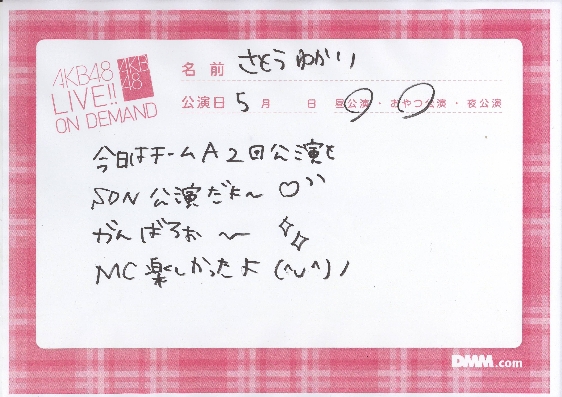 AKB48
LIVE!!
ON DEMAND
AKB
48
名前 さとうゆかり
公演日 5月 日 昼公演・おやつ公演・夜公演
今日はチームA2回公演と
SDN公演だよ〜♡
がんばろぉ〜
MC楽しかったよ(^∪^)ノ
DMM.com